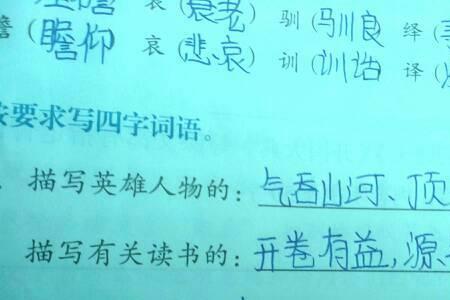 衰(衰老) 驯(驯良) 绎
瞻(瞻仰) 哀(悲哀) 训(训诂) 译
按要求写四字词语。
描写英雄人物的:气吞山河、顶
描写有关读书的:开卷有益,源